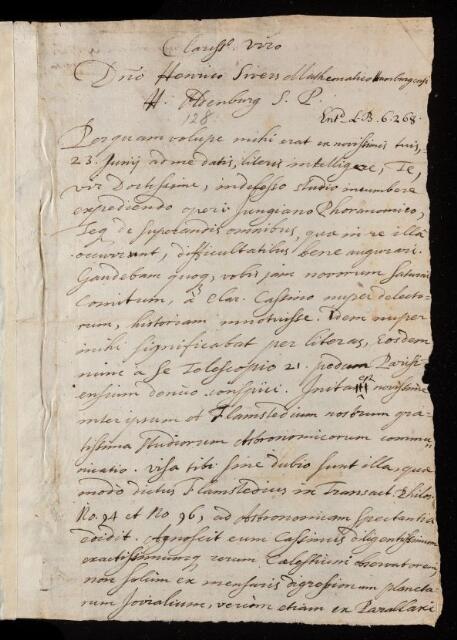 Clariss. viro
Dno Henrico Sivers Mathematico Hamburgensi
H. Oldenburg S. P.
128
Entd L.B. 6. 268.
Perquam volupe mihi erat ex novissimis tuis,
23. Junij ad me datis, literis intelligere, Te,
vir Doctissime, indefesso studio incumbere
expediendo operi Jungiano Phoranomico,
Teq de superandis omnibus, quæ in re illa
occurrunt, difficultatibus bene augurari.
Gaudebam quoq, vobis jam novorum Saturni
Comitum, à Clar. Cassino nuper detecto-
rum, historiam innotuisse. Idem nuper
mihi significabat per literas, Eosdem
nunc à se Telescopio 21. pedum Parisi-
ensium denuo conspici. Inita est novissime
inter ipsum et Flamstedium nostrum gra-
tissima studiorum Astronomicorum commu-
nicatio. Visa tibi sine dubio sunt illa, quæ
modo dictus Flamstedius in Transact. Philos.
No. 94 et No 96, ad Astronomiam spectantia
edidit. Agnoscit eum Cassinus diligentissimum
exactissimumq rerum Cælestium observatorem,
non solum ex mensuris digressionum planeta-
rum Jovialium, verùm etiam ex Parallaxi